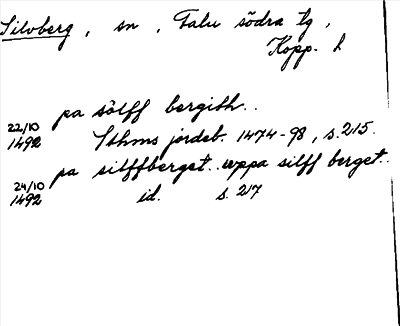 Silvberg, sn, Falu södra tg,
Kopp. l
pa sölff bergith..
22/10
1492 Sthms jordeb. 1474-98, s. 215.
pa silffberget.. uppa silff berget..
24/10
1492 id. s. 217